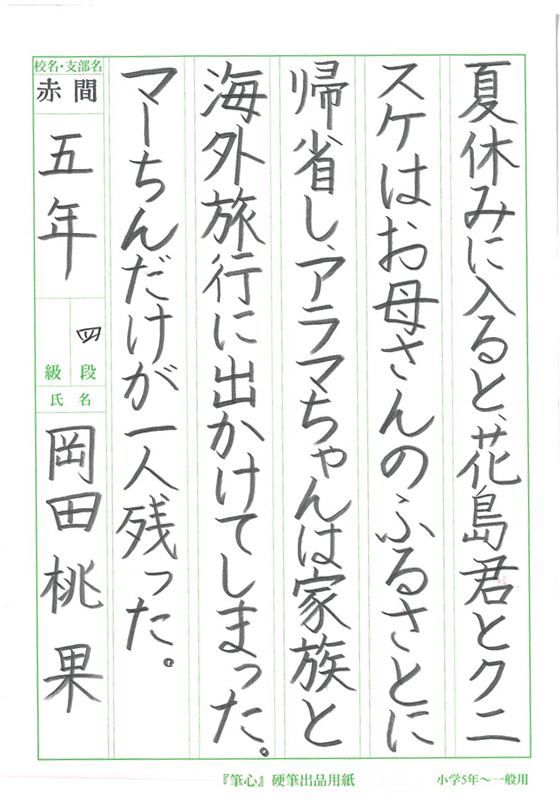 夏休みに入ると、花島君とクニ
スケはお母さんのふるさとに
帰省し、アラマちゃんは家族と
海外旅行に出かけてしまった。
マーちんだけが一人残った。
校名・支部名
赤間
五年
四
級 段
氏名
岡田桃果
『筆心』硬筆出品用紙
小学5年～一般用